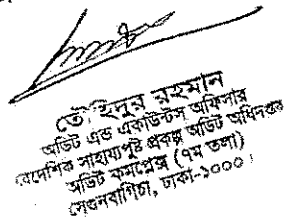 তৌহিদুর রহমান
অডিট এন্ড একাউন্টস অফিসার
বৈদেশিক সাহায্যপুষ্ট প্রকল্প অডিট অধিদপ্তর
অডিট কমপ্লেক্স (৭ম তলা)
সেগুনবাগিচা, ঢাকা-১০০০।